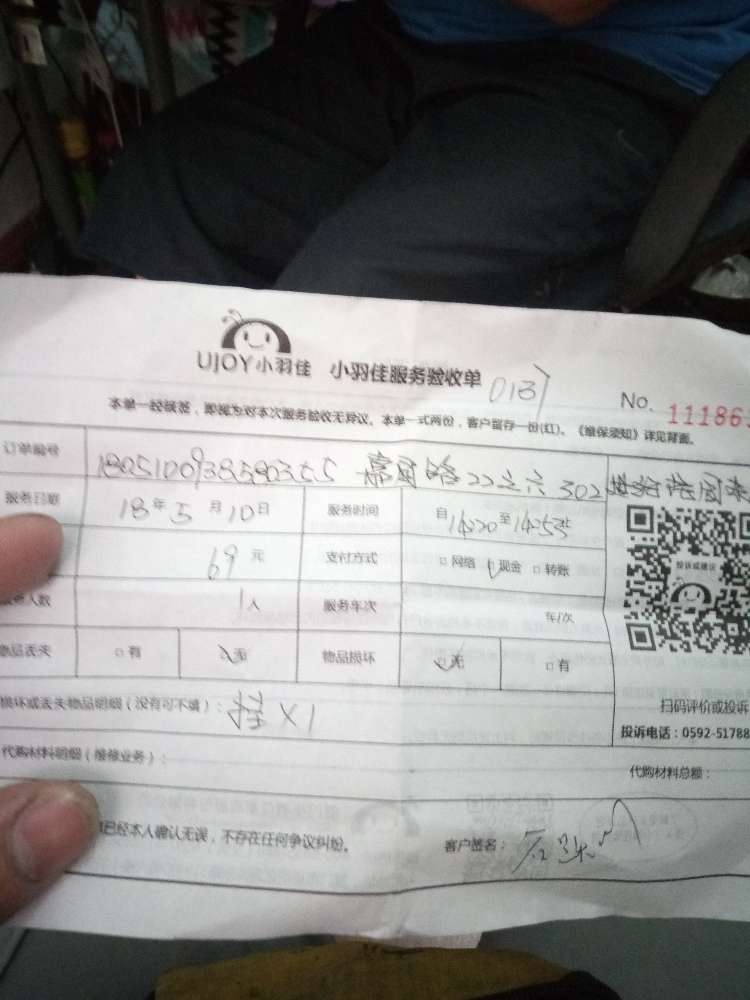 UJOY小羽佳 小羽佳服务验收单 0137
No. 11186
本单一经签签,即视为对本次服务验收无异议。本单一式两份,客户留存一份(红)。《维保须知》详见背面。
订单编号 180510093858035 22之六 302
服务日期 18年5月10日 服务时间 自14:20至14:53
69元 支付方式 网络 现金 转账
人数 1人 服务年次 年/次
物品丢失 有 无 物品损坏 无 有
投诉或建议
损坏或丢失物品明细(没有可不填): 挂X1
扫码评价或投诉
投诉电话:0592-51788
代购材料明细(维修业务):
代购材料总额:
已经本人确认无误,不存在任何争议纠纷。
客户签名: